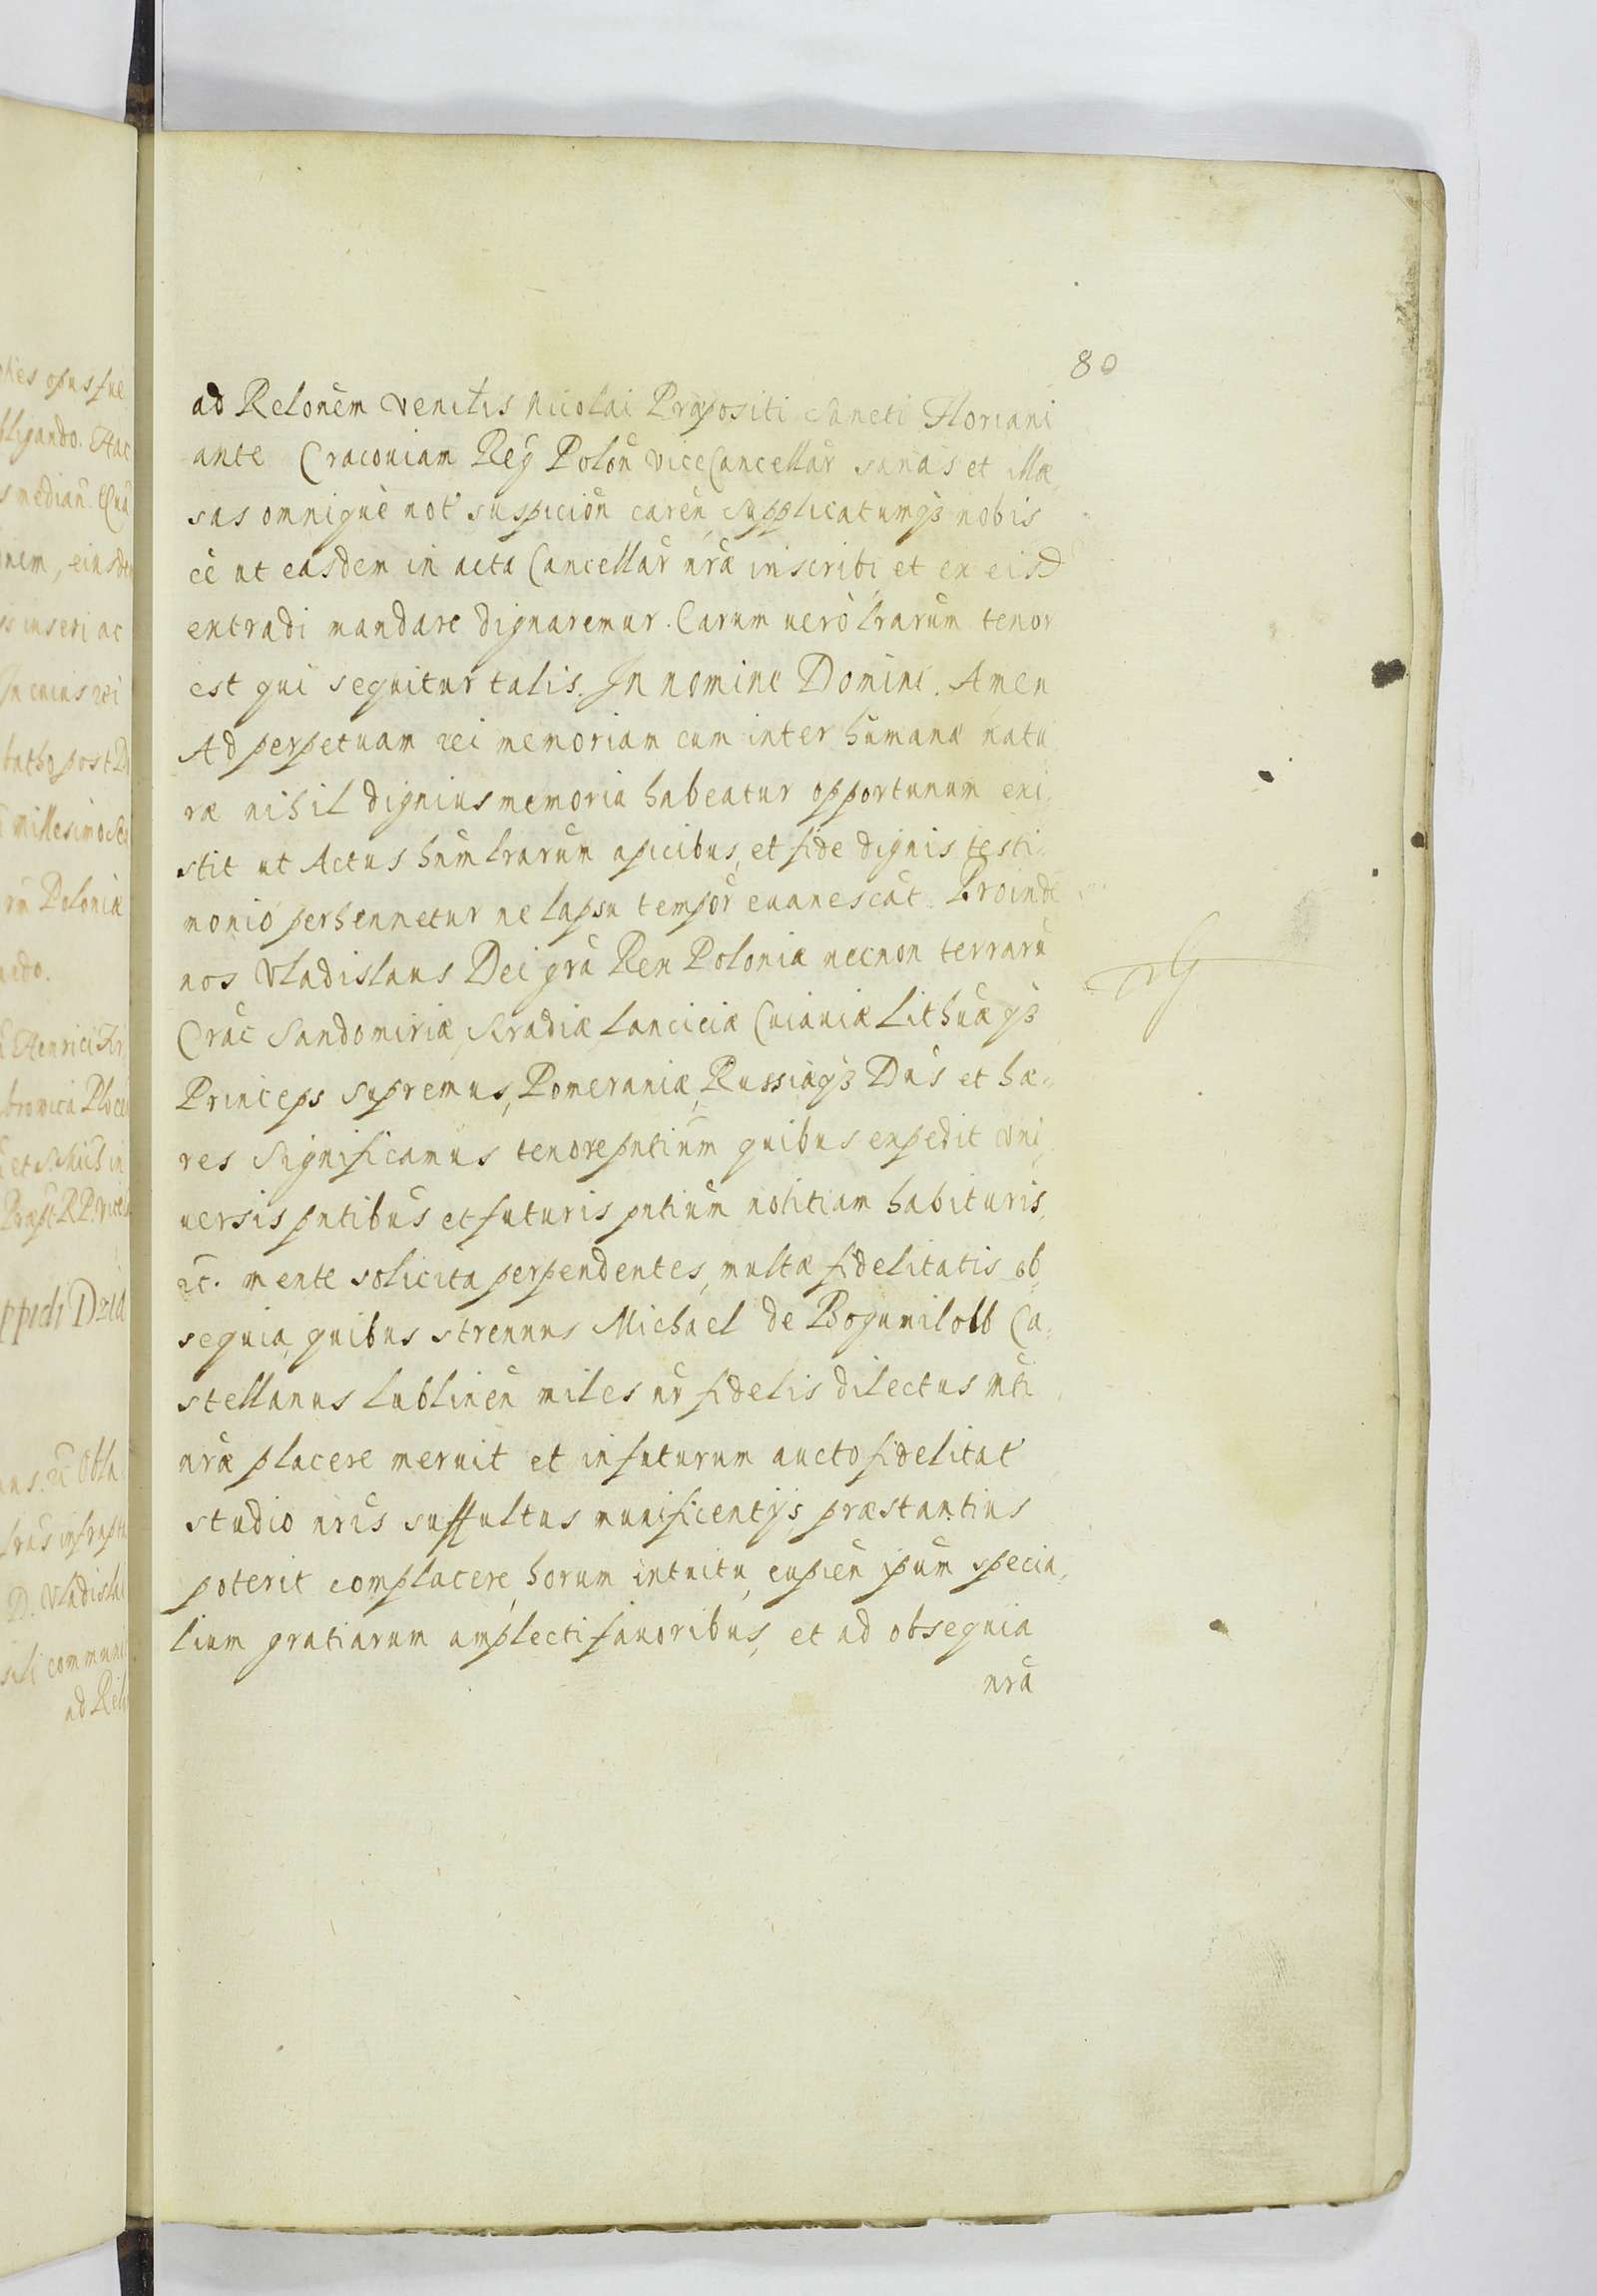 80
ad Relonem Venitis Nicolai Præpositi Sancti Floriani
ante Cracoviam Reg Polon ViceCancellar sanas et illæ
sas omnique not suspicion caren supplicatumq3 nobis
ee ut easdem in acta Cancellar nræ inscribi et ex eisd
extradi mandare dignaremur. Earum uero lrarum tenor
est qui sequitur talis. In nomine Domini. Amen
Ad perpetuam rei memoriam cum inter humanæ natu
ræ nihil dignius memoria habeatur opportunum exi
stit ut Actus hum lrarum apicibus, et fide dignis testi
monio perhennetur ne lapsu tempor euanescat. Proinde
nos Vladislaus Dei gra Rex Poloniæ necnon terraru
Crac Sandomiriæ Siradiæ Lanciciæ Cuiauiæ Lithuæq3
Princeps supremus, Pomeraniæ, Russiæq3 Dns et hæ
res Significamus tenore pntium quibus expedit vni
uersis pntibus et futuris pntium notitiam habituris,
etc. mente solicita perpendentes, multæ fidelitatis ob
sequia, quibus strenuus Michael de Bogumilobb Ca
stellanus Lublinen miles nr fidelis dilectus Mti
nræ placere meruit et in futurum aucto fidelitat
studio nris suffultus munificentijs, præstantius
poterit complacere, horum intuitu, cupien ipum specia
lium gratiarum amplecti fauoribus, et ad obsequia
nra